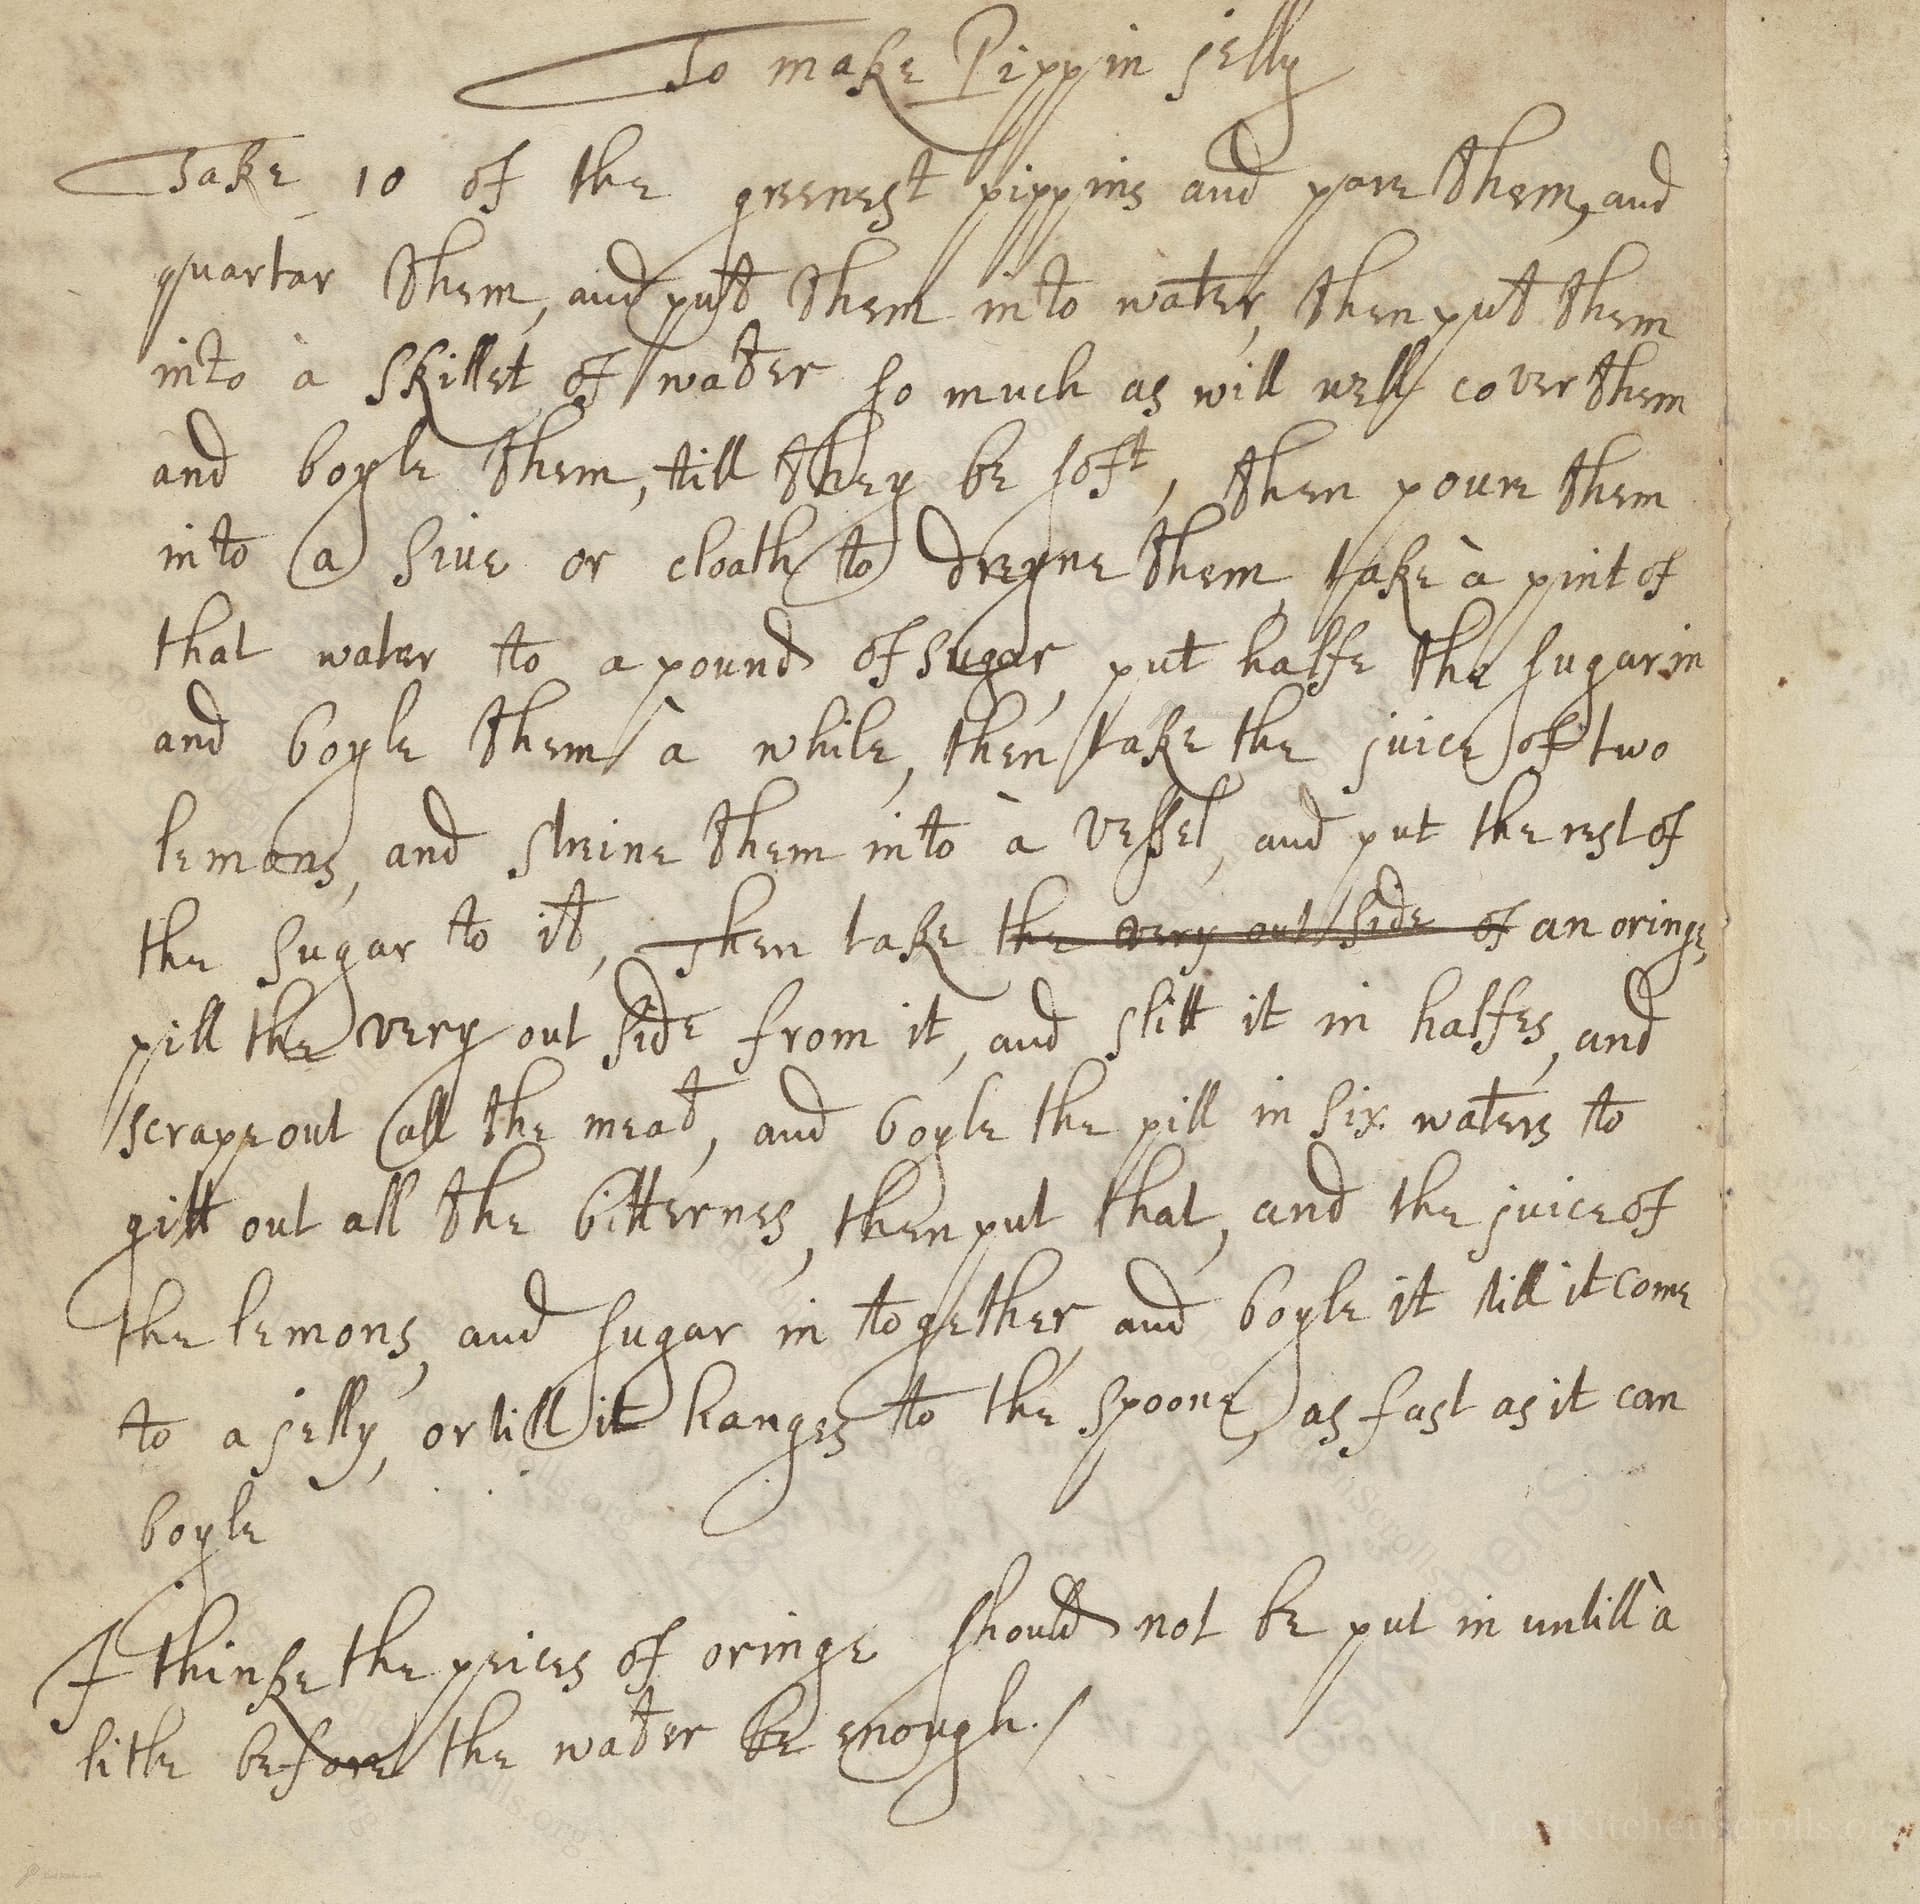 To make Pippin jelly
Take 10 of the greenest pippins and pare them, and
quartar them, and put them into water, then put them
into à skillet of water so much as will well cover them
and boyle them, till they be soft, then poure them
into a sive or cloath to dreyne them, take à pint of
that water to a pound of sugar, put halfe the sugar in
and boyle them à while, then take the juice of two
lemans, and streine them into à vessel, and put the rest of
the sugar to it, then take the very out side of an oringe,
pill the very out side from it, and slitt it in halfes, and
scrape out all the meat, and boyle the pill in six waters to
gitt out all the bitternes, then put that, and the juice of
the lemons, and sugar in together, and boyle it till it come
to a jelly, or till it hanges to the spoone, as fast as it can
boyle
I thinke the peices of oringe should not be put in untill à
litle before the water be enough./
LostKitchenScrolls.org